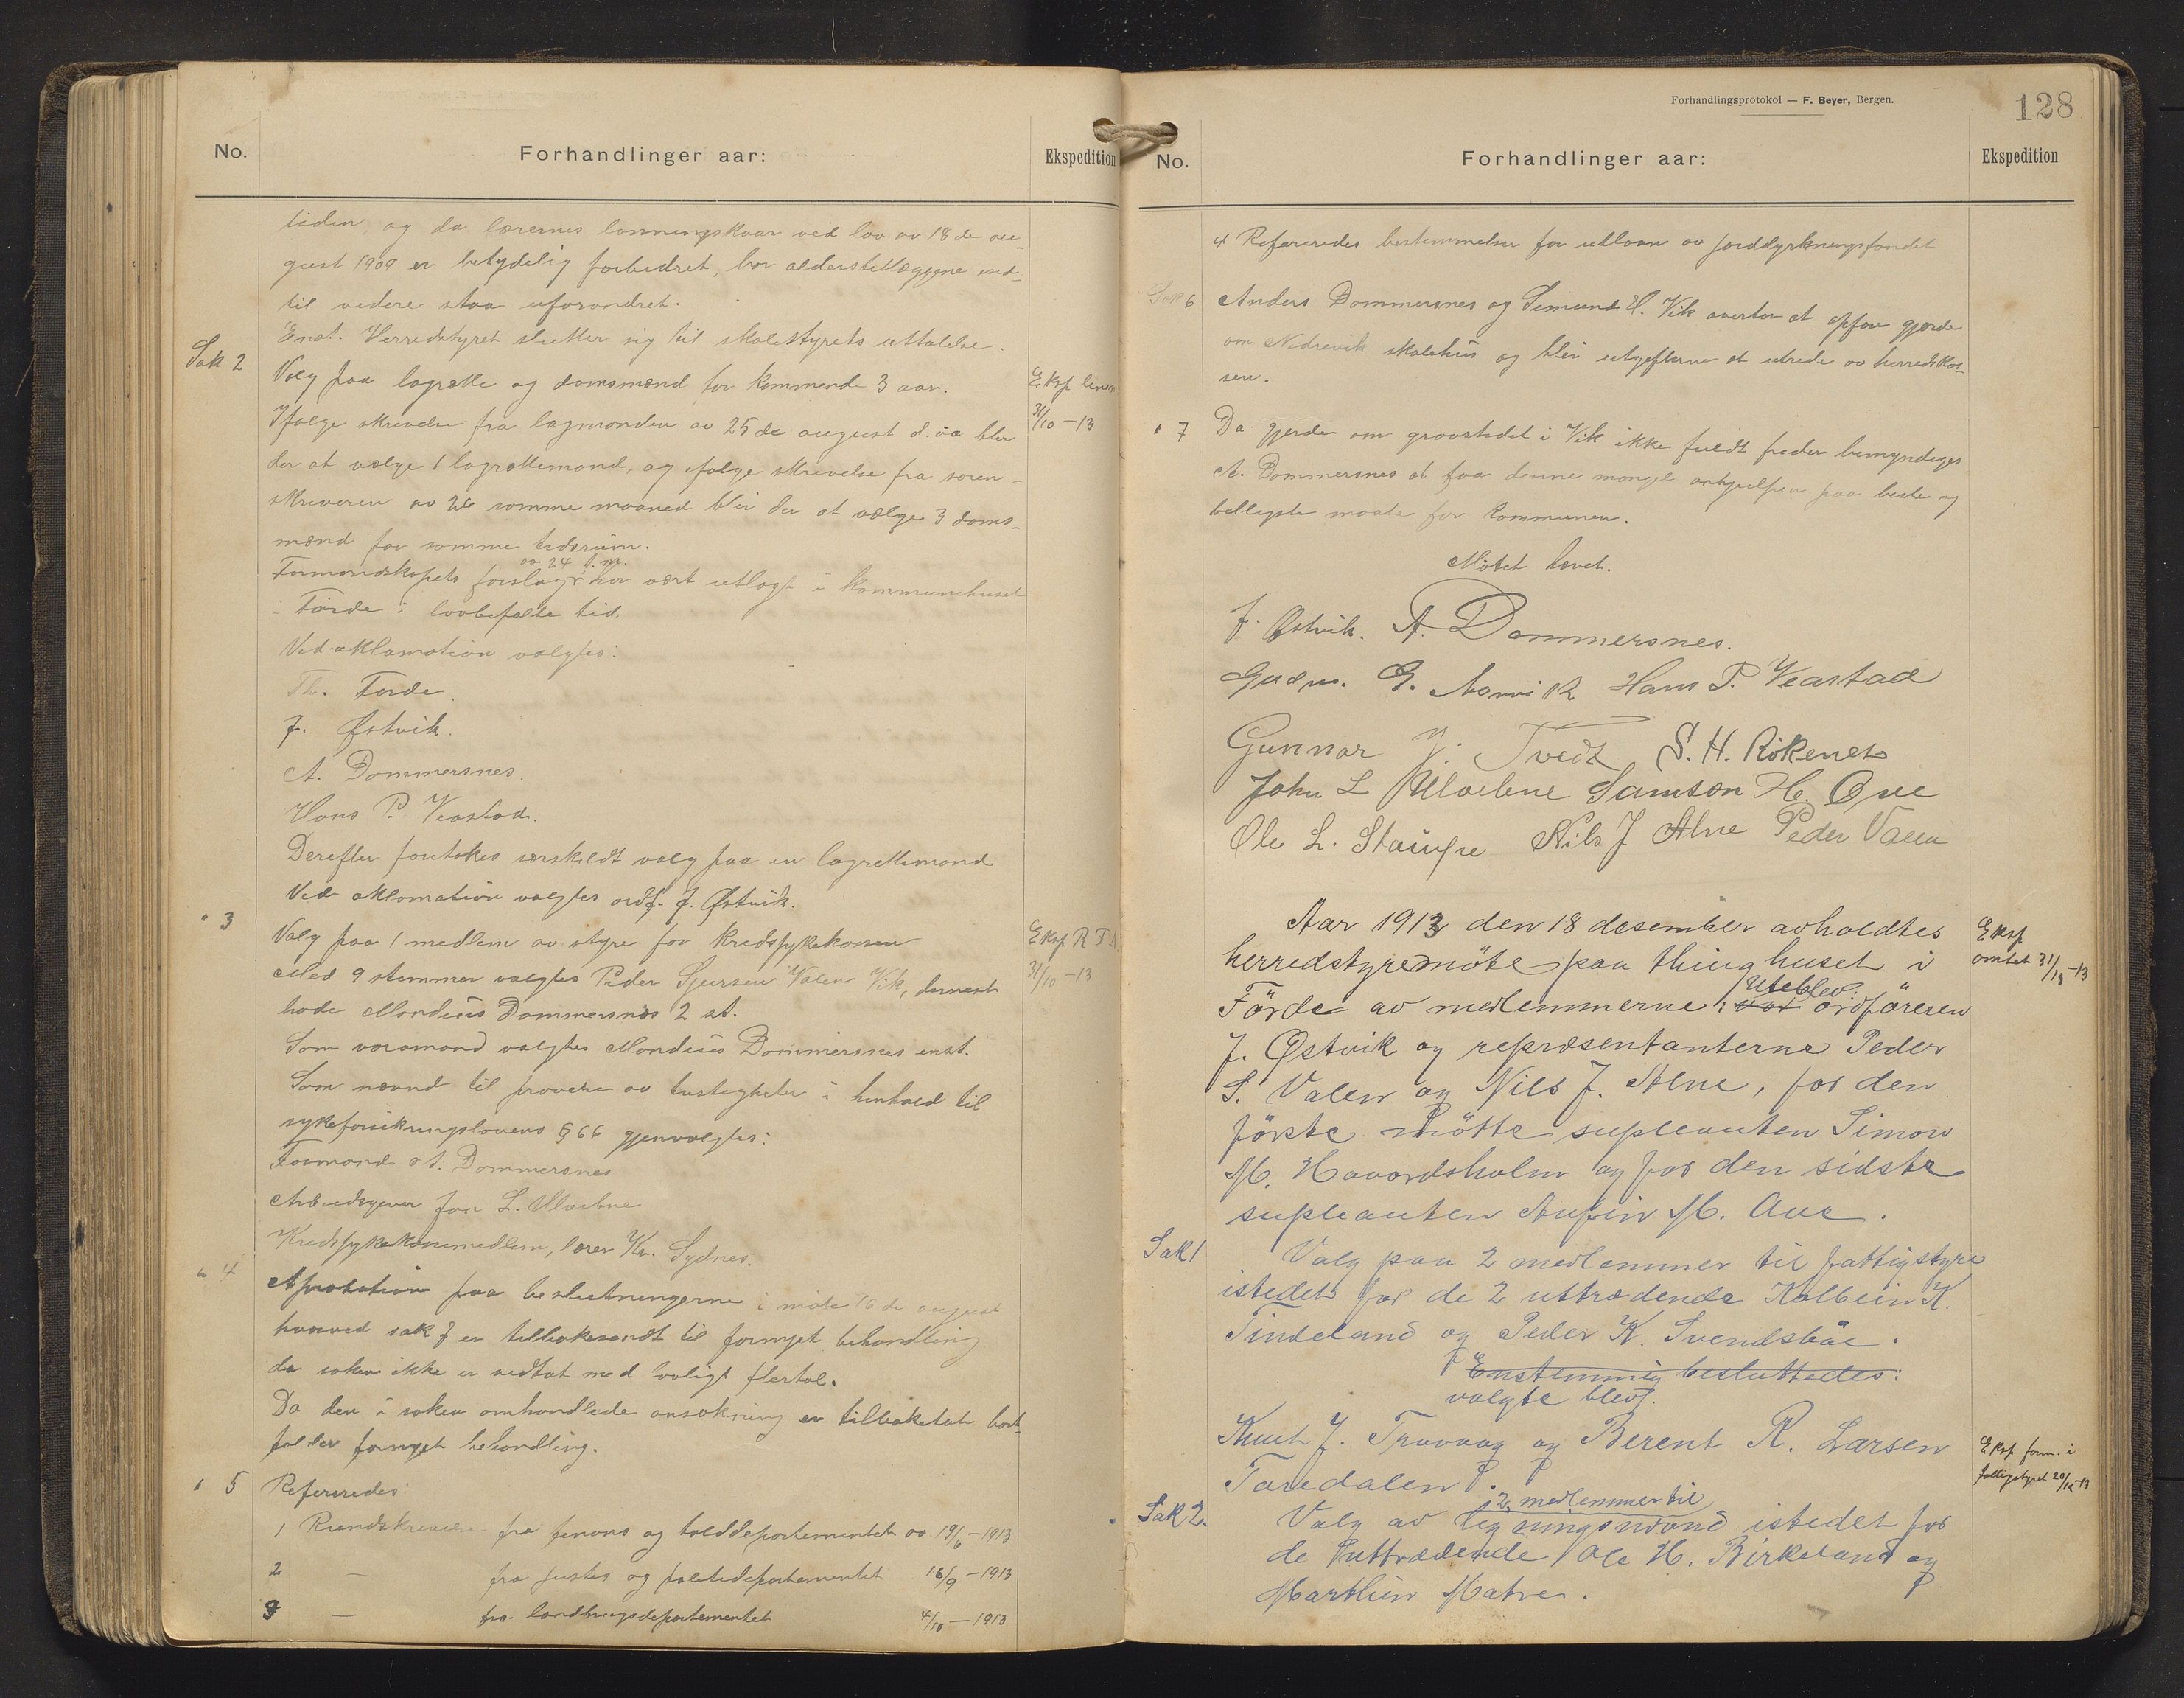 No.
Forhandlinger aar:
Ekspedition
tiden, og da lærernes lønningskaar ved lov av 18de au-
gust 1909 er betydelig forbedret, bør alderstillæggene ind-
til videre staa uforandret.
Enst. Herredstyret slutter sig til skolestyrets uttalelse.
Sak 2
Valg paa lagrette og domsmænd for kommende 3 aar.
Eksp
31/10-13
Ifølge skrivelse fra lagmanden av 25de august d. aa blir
der at vælge 1 lagrettemand, og ifølge skrivelse fra soren-
skriveren av 26 samme maaned blir der at vælge 3 doms-
mænd for samme tidsrum.
av 24 f. m.
Formandskapets forslag har vært utlagt i kommunehuset
i Førde i lovbefalte tid.
Ved aklamation valgtes:
Th. Førde.
J. Østvik.
A. Dommersnes.
Hans P. Veastad.
Derefter foretokes særskildt valg paa en lagrettemand
Ved aklamation valgtes ordf. J. Østvik.
" 3
Valg paa 1 medlem av styre for kredssykekassen
Eksp R T
31/10-13
Med 9 stemmer valgtes Peder Sjursen Valen Vik, dernæst
hade Mandius Dommersnes 2 st.
Som varamand valgtes Mandius Dommersnes enst.
Som nævnd til prøvelse av tvistigheter i henhold til
sykeforsikringslovens § 66 gjenvalgtes:
Formand A. Dommersnes
Arbeidsgiver Joh L. Ulvebne
Kredssykekassemedlem, lærer Kr. Sydnes.
" 4
Aprobation paa beslutningerne i møte 16de august
hvorved sak 7 er tilbakesendt til fornyet behandling
da saken ikke er vedtat med lovligt flertal.
Da den i saken omhandlede ansøkning er tilbaketat bort-
falder fornyet behandling.
" 5
Refereredes:
1 Rundskrivelse fra finans og tolddepartementet av 19/6-1913
2 — fra justis og politidepartementet 16/9-1913
3 — fra landbrugsdepartementet 4/10-1913
Forhandlingsprotokol — F. Beyer, Bergen.
128
No.
Forhandlinger aar:
Ekspedition
4 Refereredes bestemmelser for utlaan av jorddyrkningsfondet
Sak 6
Anders Dommersnes og Simund H. Vik overtar at opføre gjærde
om Nedrevik skolehus og blir utgifterne at utrede av herredskas-
sen.
" 7
Da gjerde om gravstedet i Vik ikke fuldt freder bemyndiges
A. Dommersnes at faa denne mangel avhjulpen paa beste og
billigste maate for kommunen.
Møtet hævet.
J. Østvik. A. Dommersnes.
Gudm. G. Nævik Hans P. Veastad
Gunnar J. Tveit S. H. Røkenes
John L Ulvebne Samson H. Øve
Ole L. Staupe Nils J Alne Peder Valen
Aar 1913 den 18 desember avholdtes
Eksp
amtet 31/12-13
herredstyremöte paa thinghuset i
Uteblev:
Förde av medlemmerne var ordföreren
J. Østvik og repræsentanterne Peder
S. Valen og Nils J. Alne, for den
förste mötte supleanten Simon
M. Haavardsholm og for den sidste
supleanten Anfin M. Aue.
Sak 1
Valg paa 2 medlemmer til fattigstyre
istedet for de 2 uttrædende Kolbein K.
Tindeland og Peder K. Svendsböe.
Enstemmig besluttedes:
valgte blev:
Knut J. Travaag og Berent R. Larsen
Eksp form. i
fattigstyret 20/12-13
Faredalen.
Sak 2.
2 medlemmer til
Valg av ligningsnævnd istedet for
de uttrædende Ole H. Birkeland og
Marthin Matre.